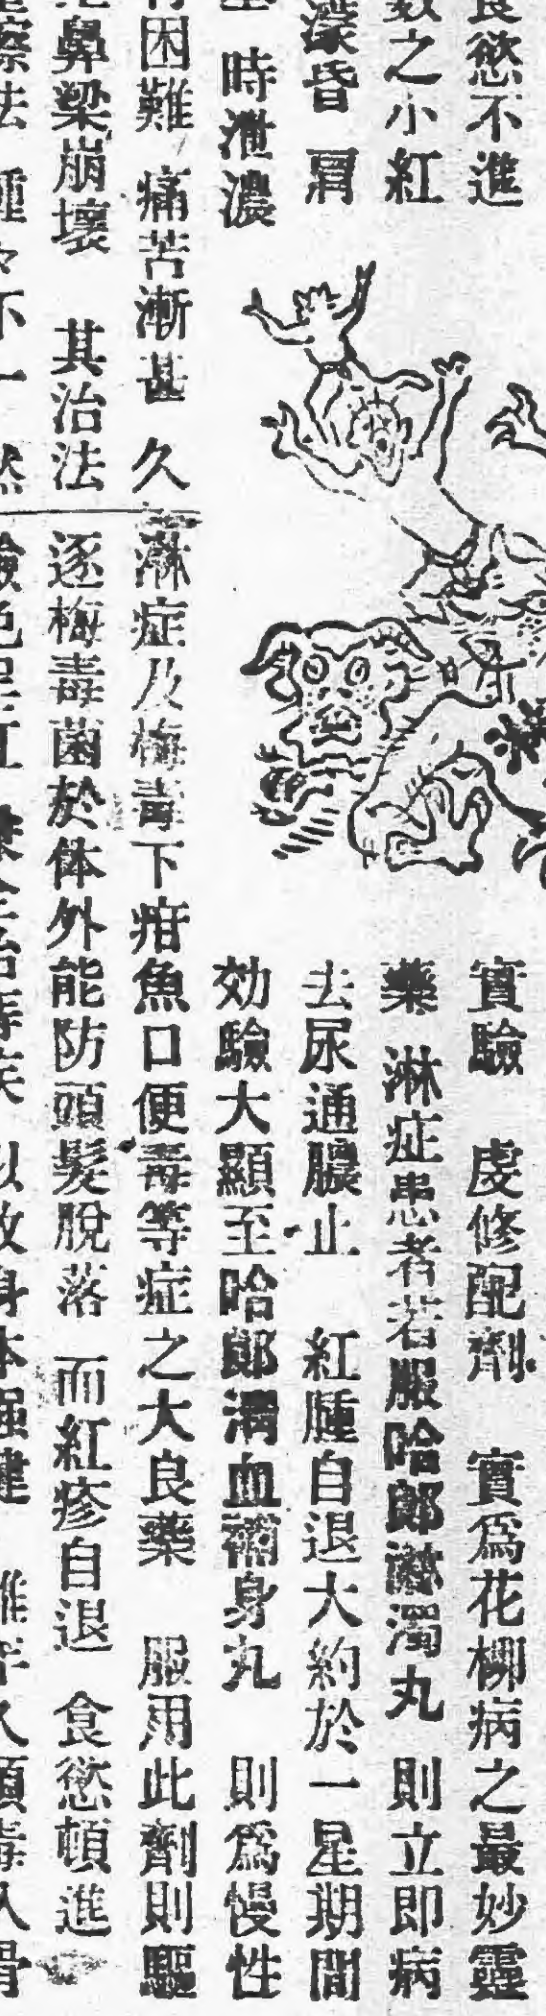 食慾不進
數之小紅
濛昏 胃
時泄濃
困難 痛苦漸甚 久
鼻梁崩壞 其治法
療法 種々不一 然
實驗 虔修配劑 實爲花柳病之最妙靈
藥 淋症患者若服哈郎淋濁丸 則立即病
去尿通膿止 紅腫自退大約於一星期間
効驗大顯至哈郎淸血補身丸 則爲慢性
淋症及梅毒下疳魚口便毒等症之大良藥 服用此劑則驅
逐梅毒菌於体外能防頭髮脫落 而紅疹自退 食慾頓進